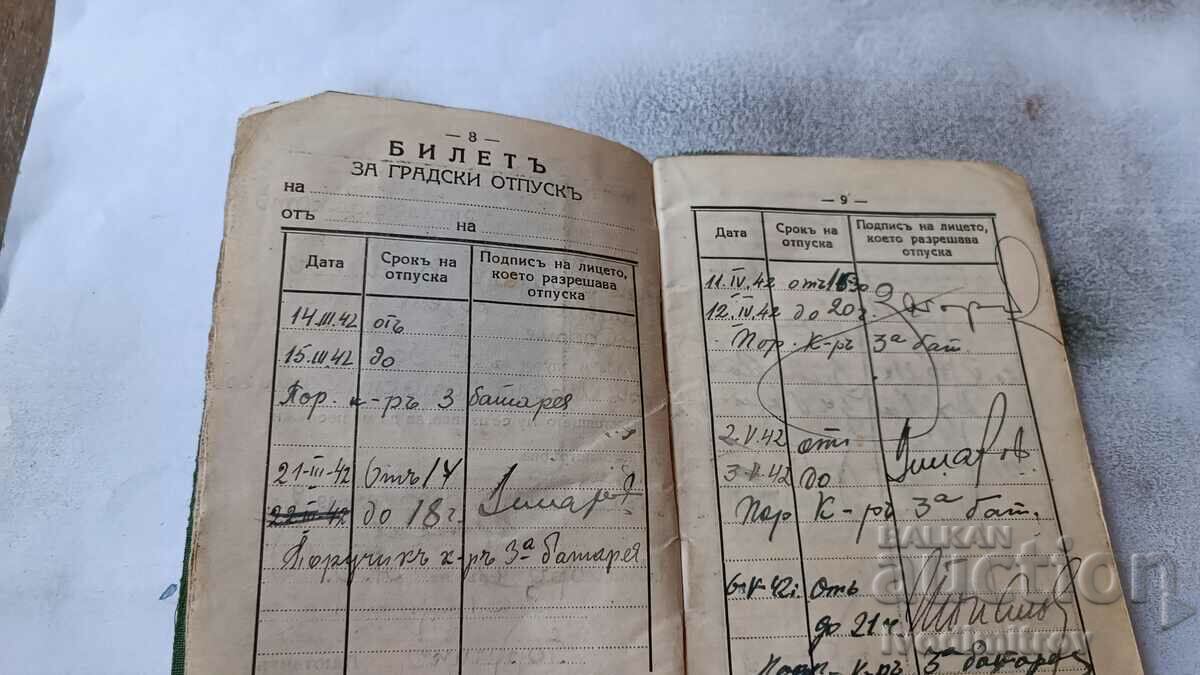 — 8 —
БИЛЕТЪ
ЗА ГРАДСКИ ОТПУСКЪ
на
отъ на
Дата Срокъ на отпуска Подписъ на лицето, което разрешава отпуска
14.III.42 отъ
15.III.42 до
Пор. к-ръ 3 батарея
21-III-42 отъ 14
22-III-42 до 18 ч.
Поручикъ к-ръ 3а батарея
— 9 —
Дата Срокъ на отпуска Подписъ на лицето, което разрешава отпуска
11.IV.42 отъ
12.IV.42 до 20 г.
Пор. К-ръ 3а бат.
2.V.42 отъ
3.V.42 до
Пор К-ръ 3а бат.
6-V-42 отъ
до 21 ч
к-ръ 3а батарея
BALKAN
auction